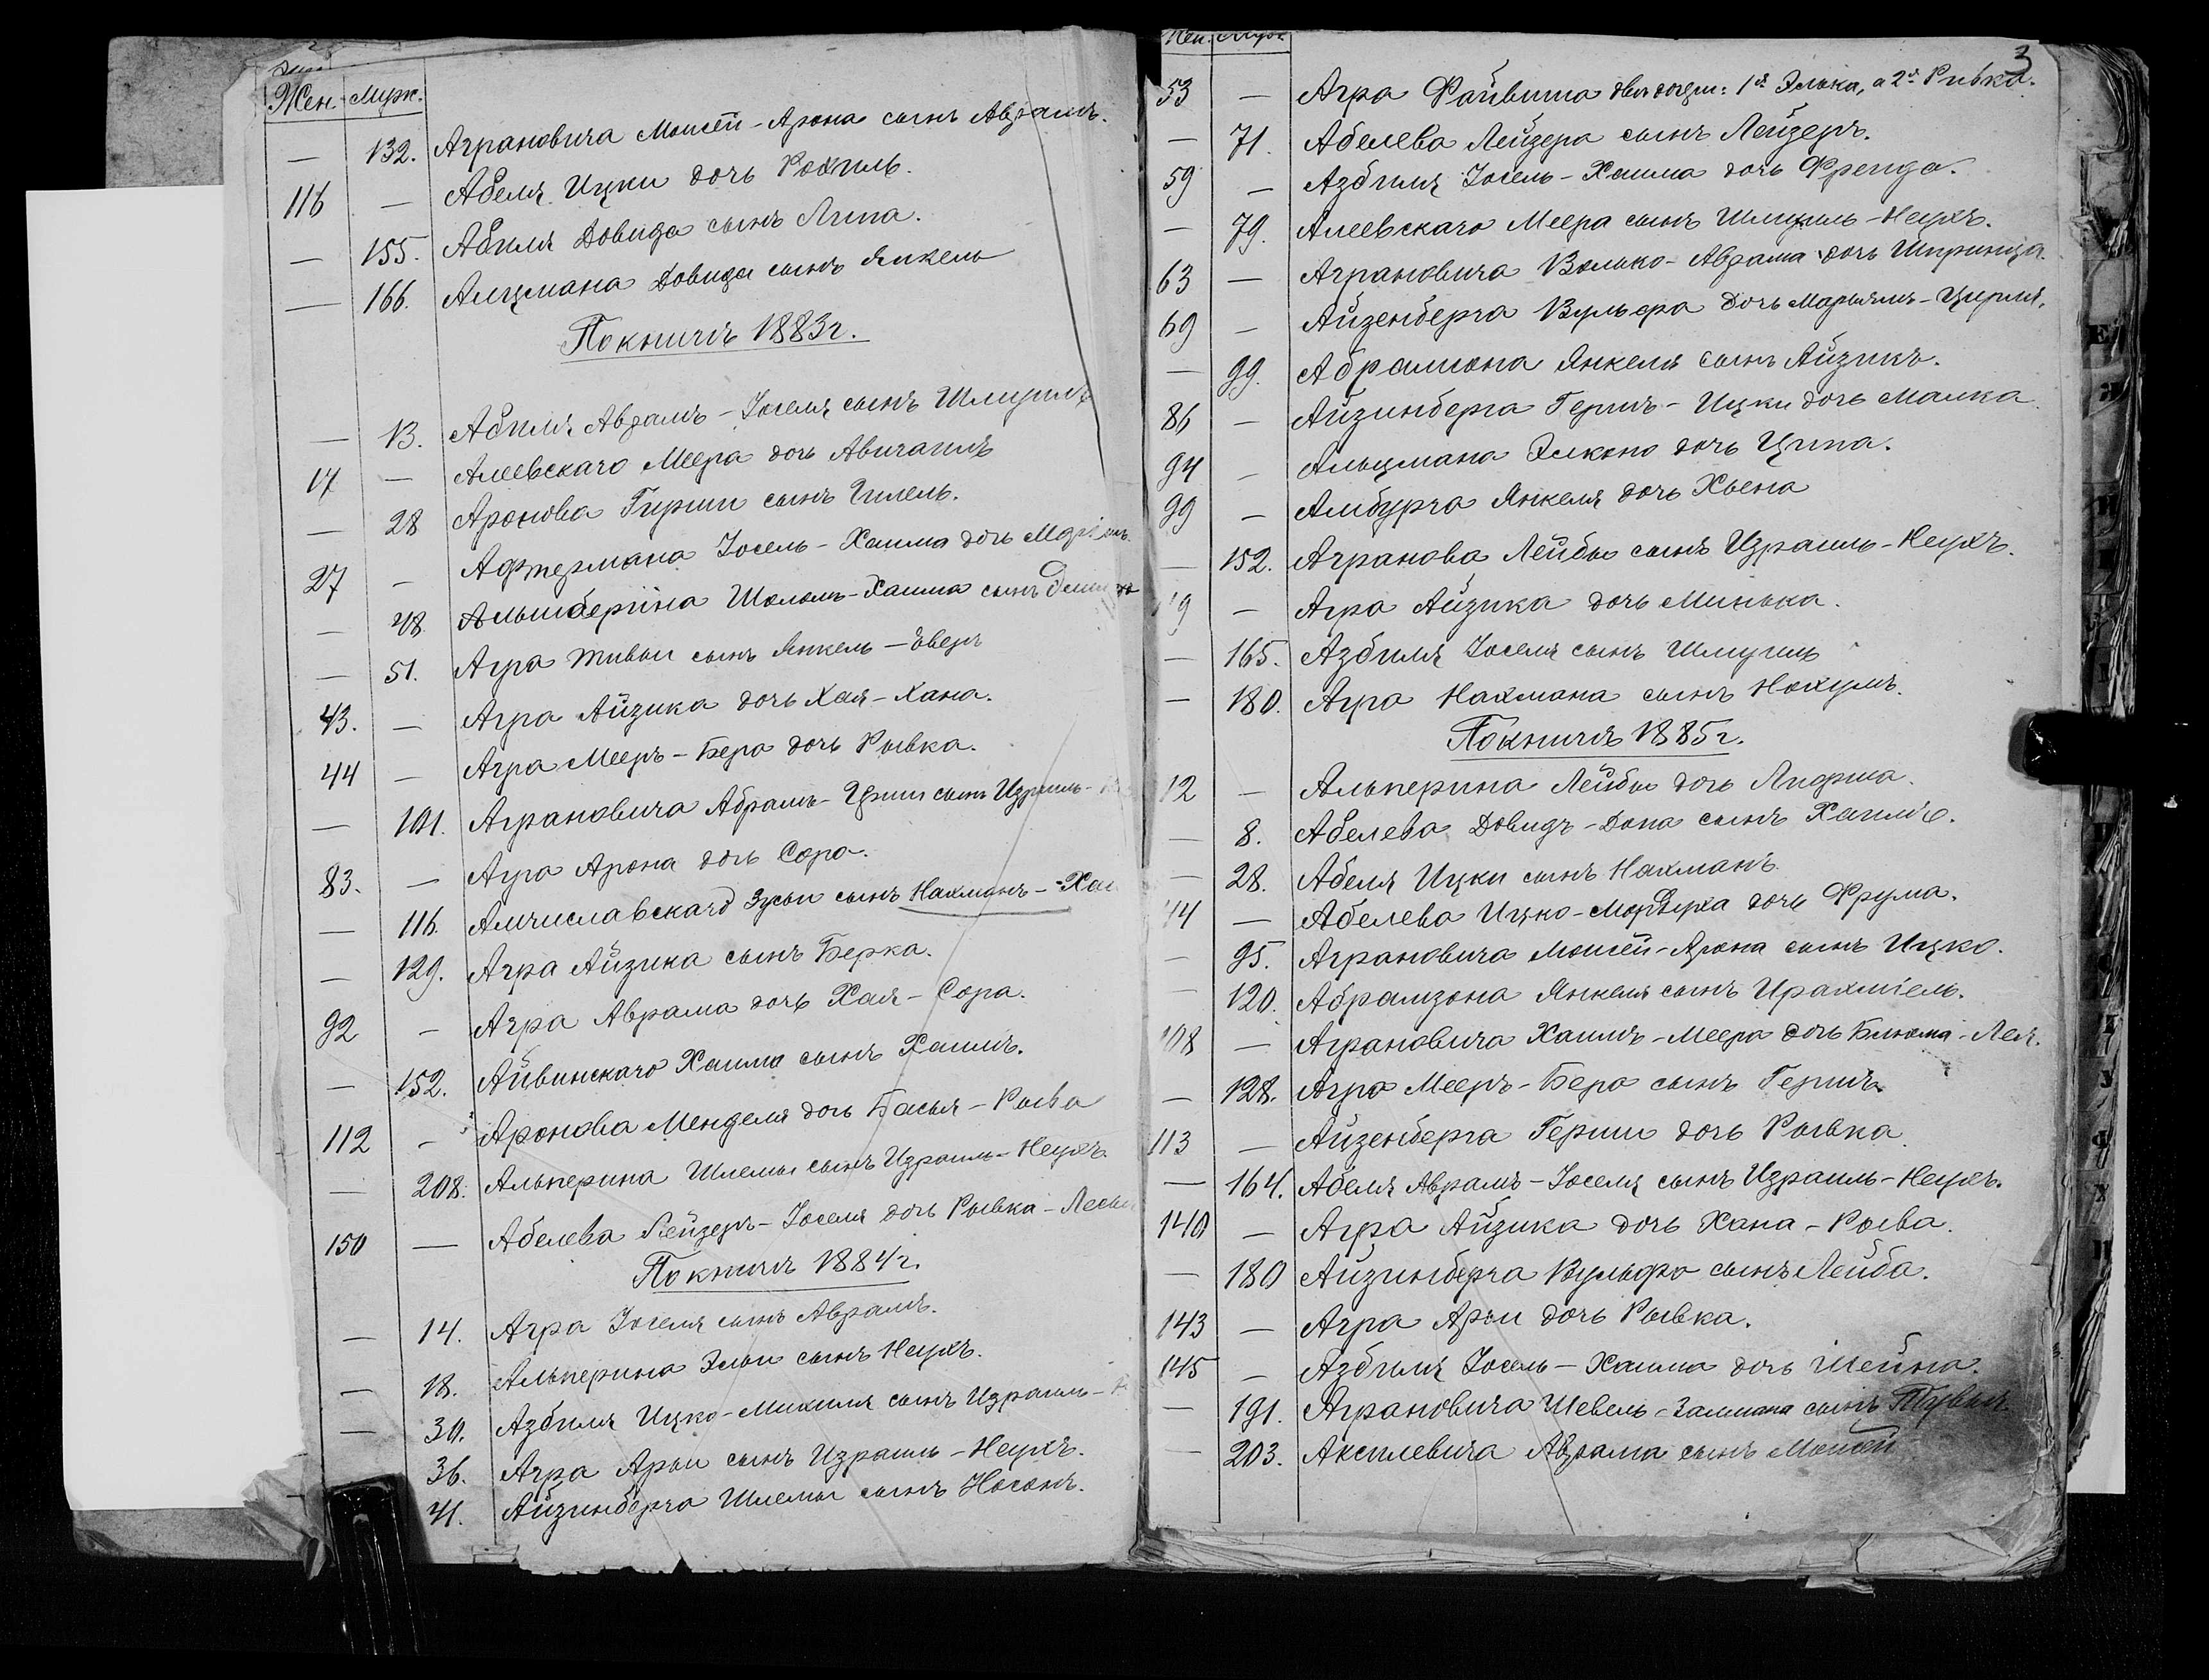 Жен. Муж.
— 132. Аграновича Мойсей-Арона сынъ Аврамъ.
116 — Абеля Ицки дочь Рохиль.
— 155. Абиля Довида сынъ Липа.
— 166. Алцмана Довида сынъ Янкель
По книгѣ 1883 г.
— 13. Абиля Аврамъ-Іоселя сынъ Шмуилъ
17 — Алеевскаго Меера дочь Авигаиль
— 28 Аронова Гирши сынъ Гилель.
27 — Афтермана Іосель-Хаима дочь
— 48 Шоломъ-Хаима сынъ
— 51. Агра Тивьи сынъ Янкель-Ѣверъ
43. — Агра Айзика дочь Хая-Хана.
44 — Агра Мееръ-Бера дочь Рывка.
— 101. Аграновича Абрамъ-Гирши сынъ Израиль-
83. — Агра Арона дочь Сора.
— 116. Амчиславскаго Зусьи сынъ Нахманъ-
— 129. Агра Айзика сынъ Берка.
92 — Агра Аврама дочь Хая-Сора.
— 152. Айвинскаго Хаима сынъ Хаимъ.
112 — Аронова Менделя дочь Басья-Рыва
— 208. Альперина Шлемы сынъ Израиль-Неухъ.
150 — Абелева Лейзеръ-Іоселя дочь Рывка-
По книгѣ 1884 г.
— 14. Агра Іоселя сынъ Аврамъ.
— 18. Альперина Эльи сынъ Неухъ.
— 30. Азбиля Ицко-Михиля сынъ Израиль-
36. Агра Арьи сынъ Израиль-Неухъ.
41. Айзинберга Шлемы сынъ Носонъ.
Жен. Муж.
3
53 — Агра Файвиша двѣ дочери: 1я Элька, а 2я Ривка.
— 71. Абелева Лейзера сынъ Лейзеръ.
59 — Азбиля Іосель-Хаима дочь Фрейда.
— 79. Алеевскаго Меера сынъ Шмуиль-Неухъ.
63 — Аграновича Волько-Аврама дочь Шпринца.
69 — Айзенберга Вульфа дочь Марьямъ-Цирля.
— 99. Абрамзона Янкеля сынъ Айзикъ.
86 — Айзинберга Гершъ-Ицки дочь Малка
94 — Альцмана Элконо дочь Ципа.
99 — Амбурга Янкеля дочь Хьена
— 152. Агранова Лейбы сынъ Израиль-Неухъ.
— Агра Айзика дочь Минька.
— 165. Азбиля Іоселя сынъ Шмуиль
— 180. Агра Нахмана сынъ Нохумъ.
По книгѣ 1885 г.
12 — Альперина Лейбы дочь Лифша.
— 8. Абелева Довидъ-Дона сынъ Хаимъ.
— 28. Абеля Ицки сынъ Нахманъ.
44 — Абелева Ицко-Мордуха дочь Фрума.
— 95. Аграновича Мойсей-Арона сынъ Ицко.
— 120. Абрамзона Янкеля сынъ Ирахміель.
108 — Аграновича Хаимъ-Меера дочь Блюма-Лея.
— 128. Агра Мееръ-Бера сынъ Гершъ.
113 — Айзенберга Герши дочь Рывка.
— 164. Абеля Аврамъ-Іоселя сынъ Израиль-Неухъ.
140 — Агра Айзика дочь Хана-Рыва.
— 180 Айзинберга Вульфа сынъ Лейба.
143 — Агра Арьи дочь Рывка.
145 — Азбиля Іосель-Хаима дочь Шейна.
— 191. Аграновича Шевель-Залмана сынъ Тувья.
— 203. Аксилевича Аврама сынъ Мойсей